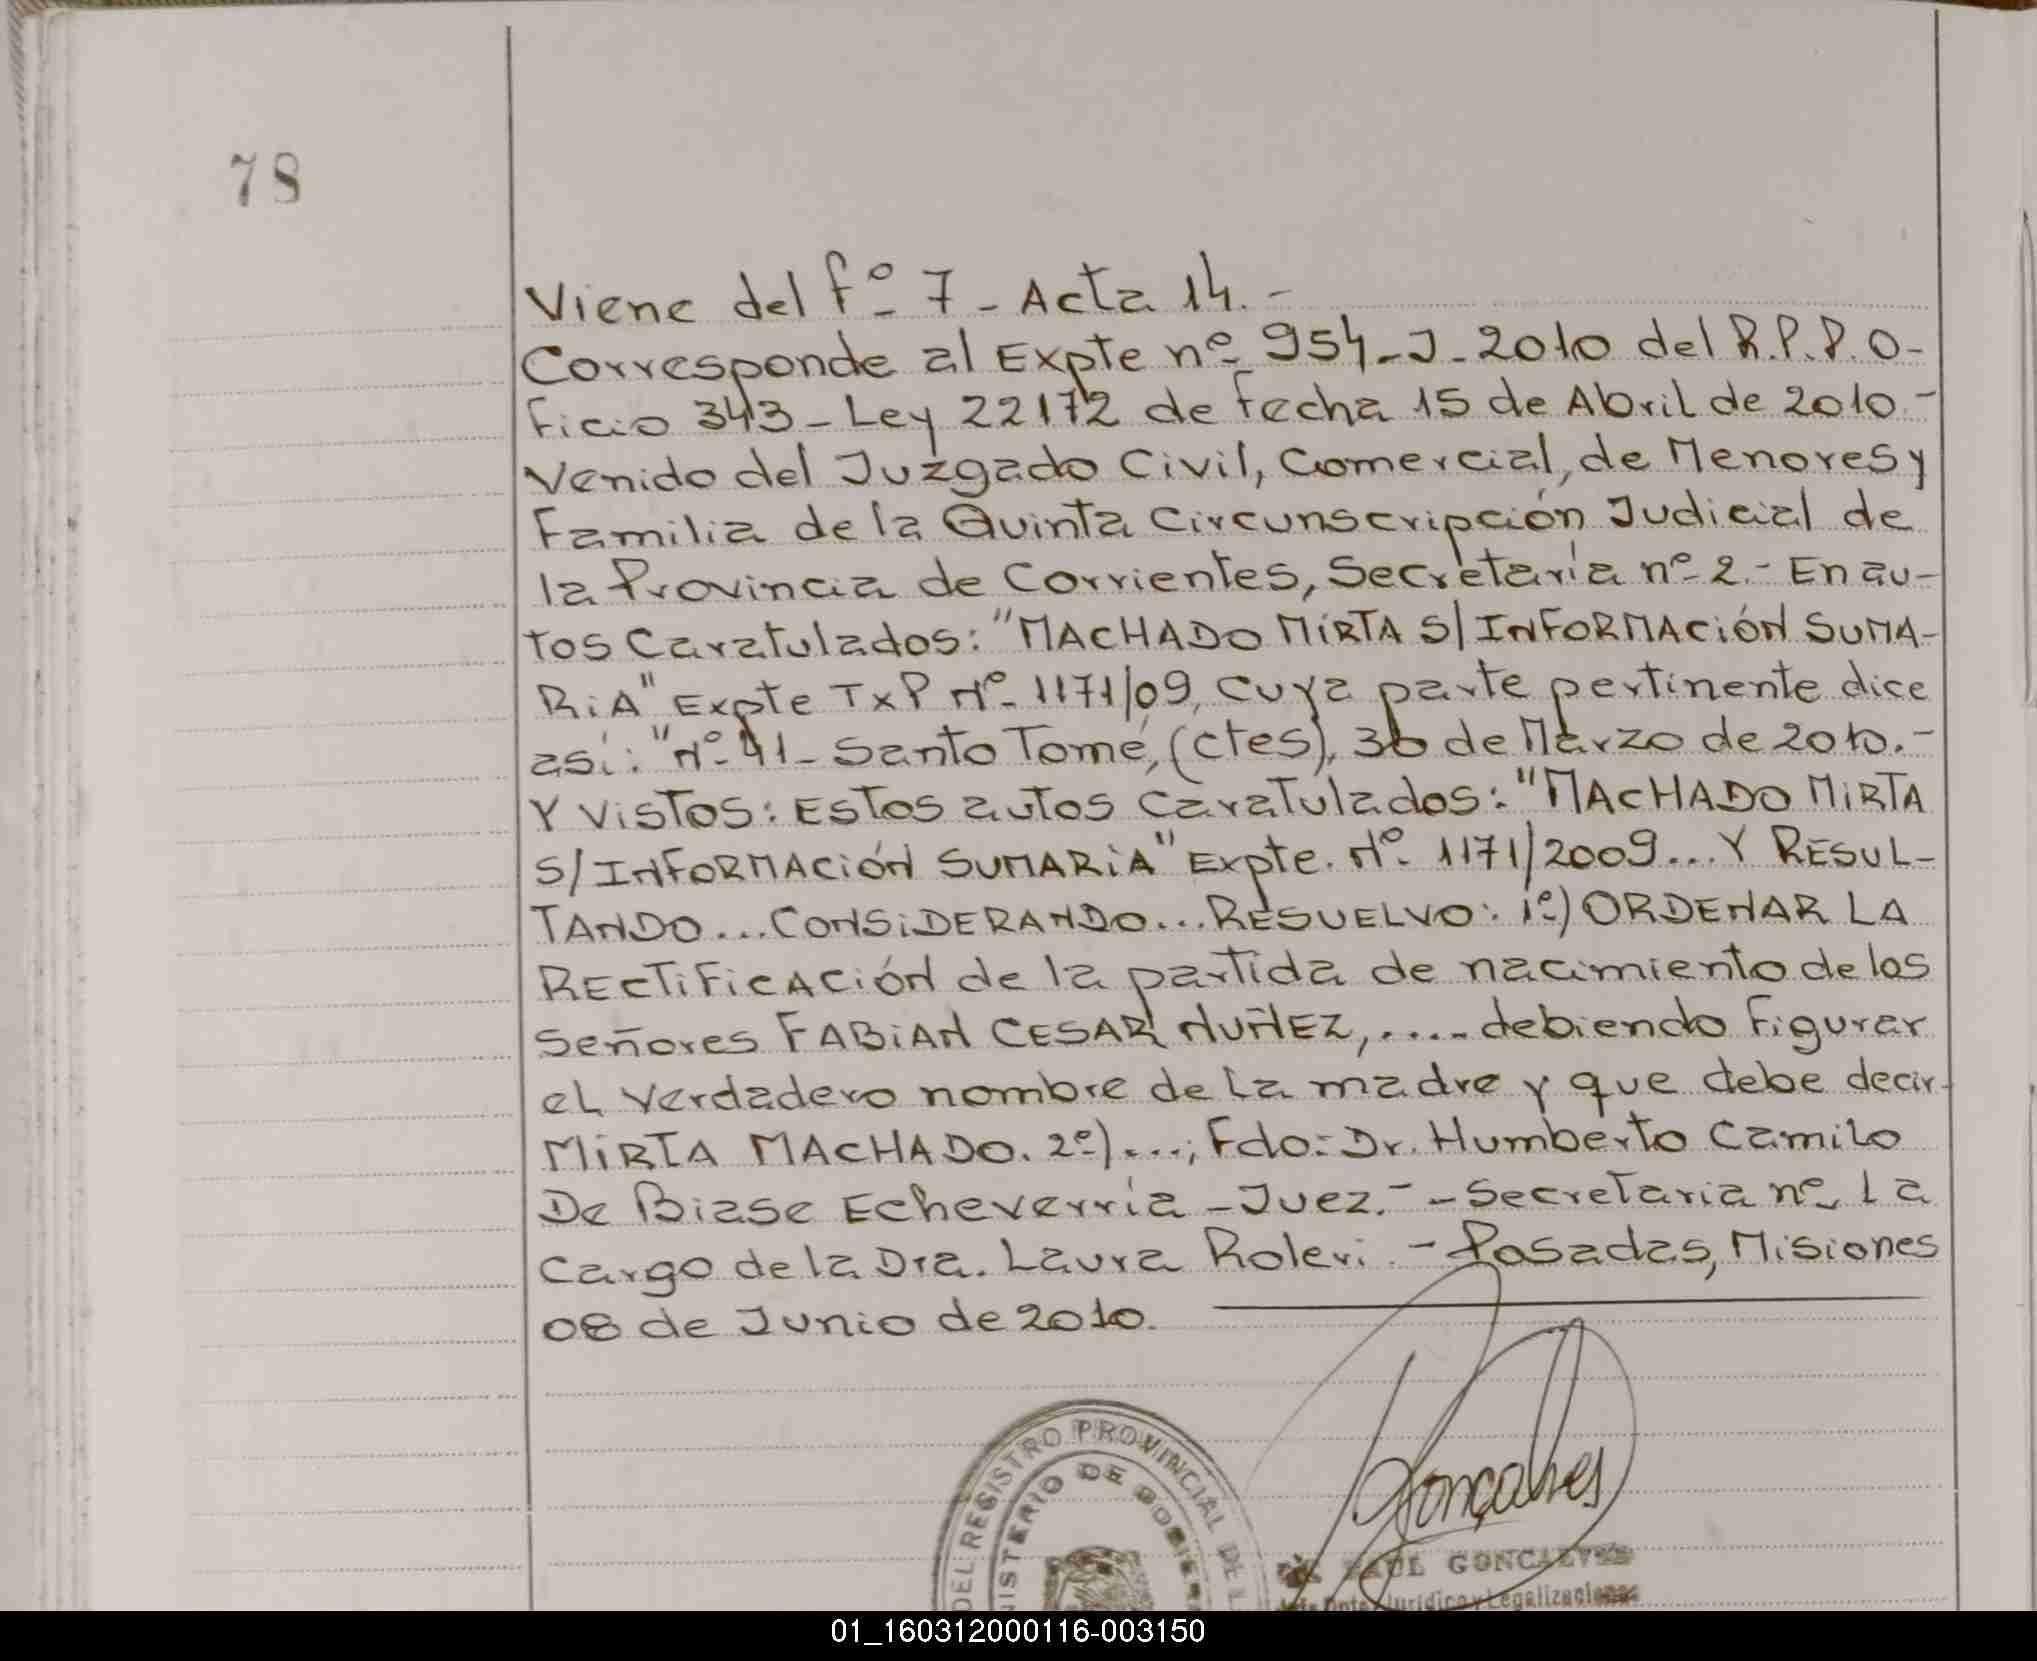 78
Viene del fº 7 - Acta 14.-
Corresponde al Expte nº 954-J-2010 del R.P.P. O-
ficio 343 - Ley 22172 de fecha 15 de Abril de 2010.-
Venido del Juzgado Civil, Comercial, de Menores y
Familia de la Quinta Circunscripción Judicial de
la Provincia de Corrientes, Secretaría nº 2.- En au-
tos Caratulados: "MACHADO MiRTA S/ INFORMACiÓN SUMA-
RiA" Expte TxP Nº 1171/09, cuya parte pertinente dice
así: "Nº 41 - Santo Tomé, (Ctes), 30 de Marzo de 2010.-
Y ViSTOS: ESTOS autos Caratulados: "MACHADO MiRTA
S/ INFORMACiÓN SUMARiA" Expte. Nº 1171/2009... Y RESUL-
TANDO... CONSiDERANDO... RESUELVO: 1º) ORDENAR LA
RECTiFiCACiÓN de la partida de nacimiento de los
Señores FABiAN CESAR NUÑEZ,..... debiendo Figurar
el Verdadero nombre de la madre y que debe decir
MiRTA MACHADO. 2º)...; Fdo: Dr. Humberto Camilo
De Biase Echeverría - Juez.- - Secretaria nº 1 a
Cargo de la Dra. Laura Roleri.- Posadas, Misiones
08 de Junio de 2010.
DEL REGISTRO PROVINCIAL DE L
MINISTERIO DE GOBIER
Gonçalves
RAUL GONCALVES
Jefe Dpto. Jurídico y Legalizaciones
01_160312000116-003150